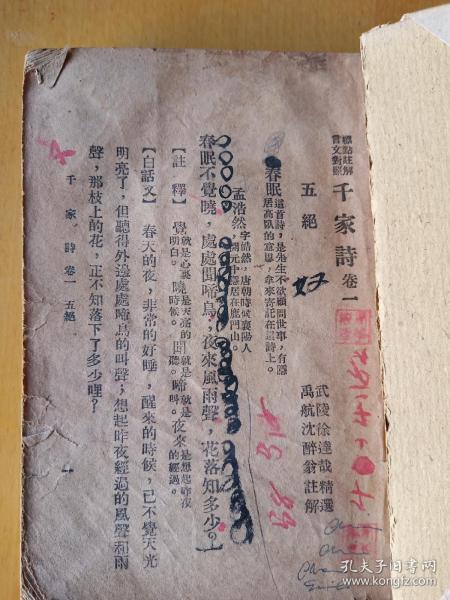 標點註解
言文對照
千家詩 卷一
武陵徐達哉精選
禹航沈醉翁註解
五絕
好
春眠
這首詩，是先生不欲顧問世事，有隱
居高臥的意思，拿來寄記在這詩上。
孟浩然
字浩然，唐朝時候襄陽人
開元中隱居在鹿門山。
春眠不覺曉，處處聞啼鳥，夜來風雨聲，花落知多少？
【註釋】
覺就是心裏明白。
曉是天亮的時候。
聞就是聽。
啼就是叫。
夜來是想起昨夜的經過。
【白話文】春天的夜，非常的好睡，醒來的時候，已不覺天光
明亮了，但聽得外邊處處啼鳥的叫聲；想起昨夜經過的風聲和雨
聲，那枝上的花，正不知落下了多少哩？
千家詩 卷一 五絕
一
孔夫子旧书网